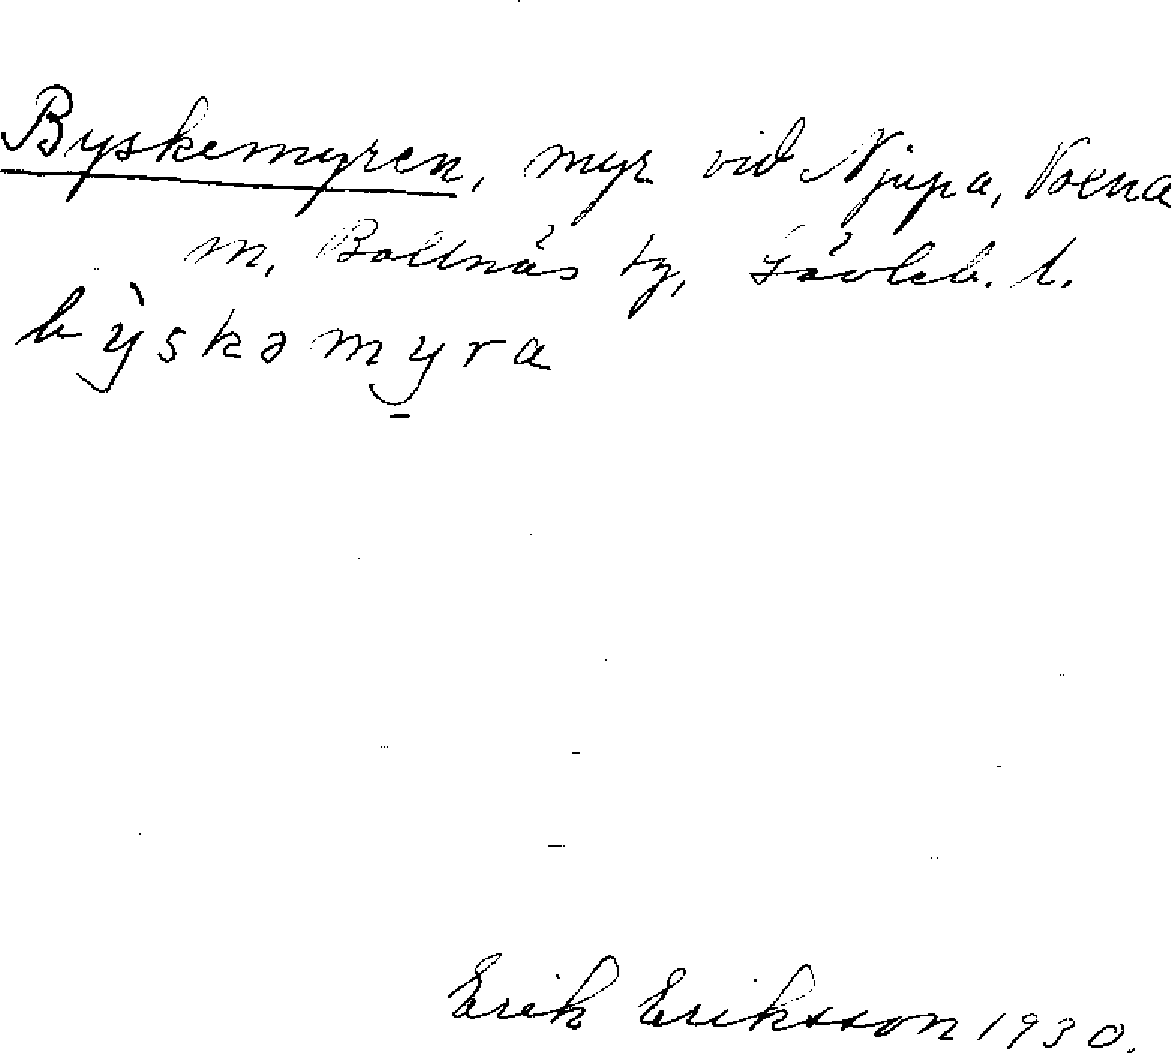 Byskemyren, myr vid Njupa, Voxna
m, Bollnäs tg, Gävleb. l.
byskəmyra
Erik Eriksson 1930.